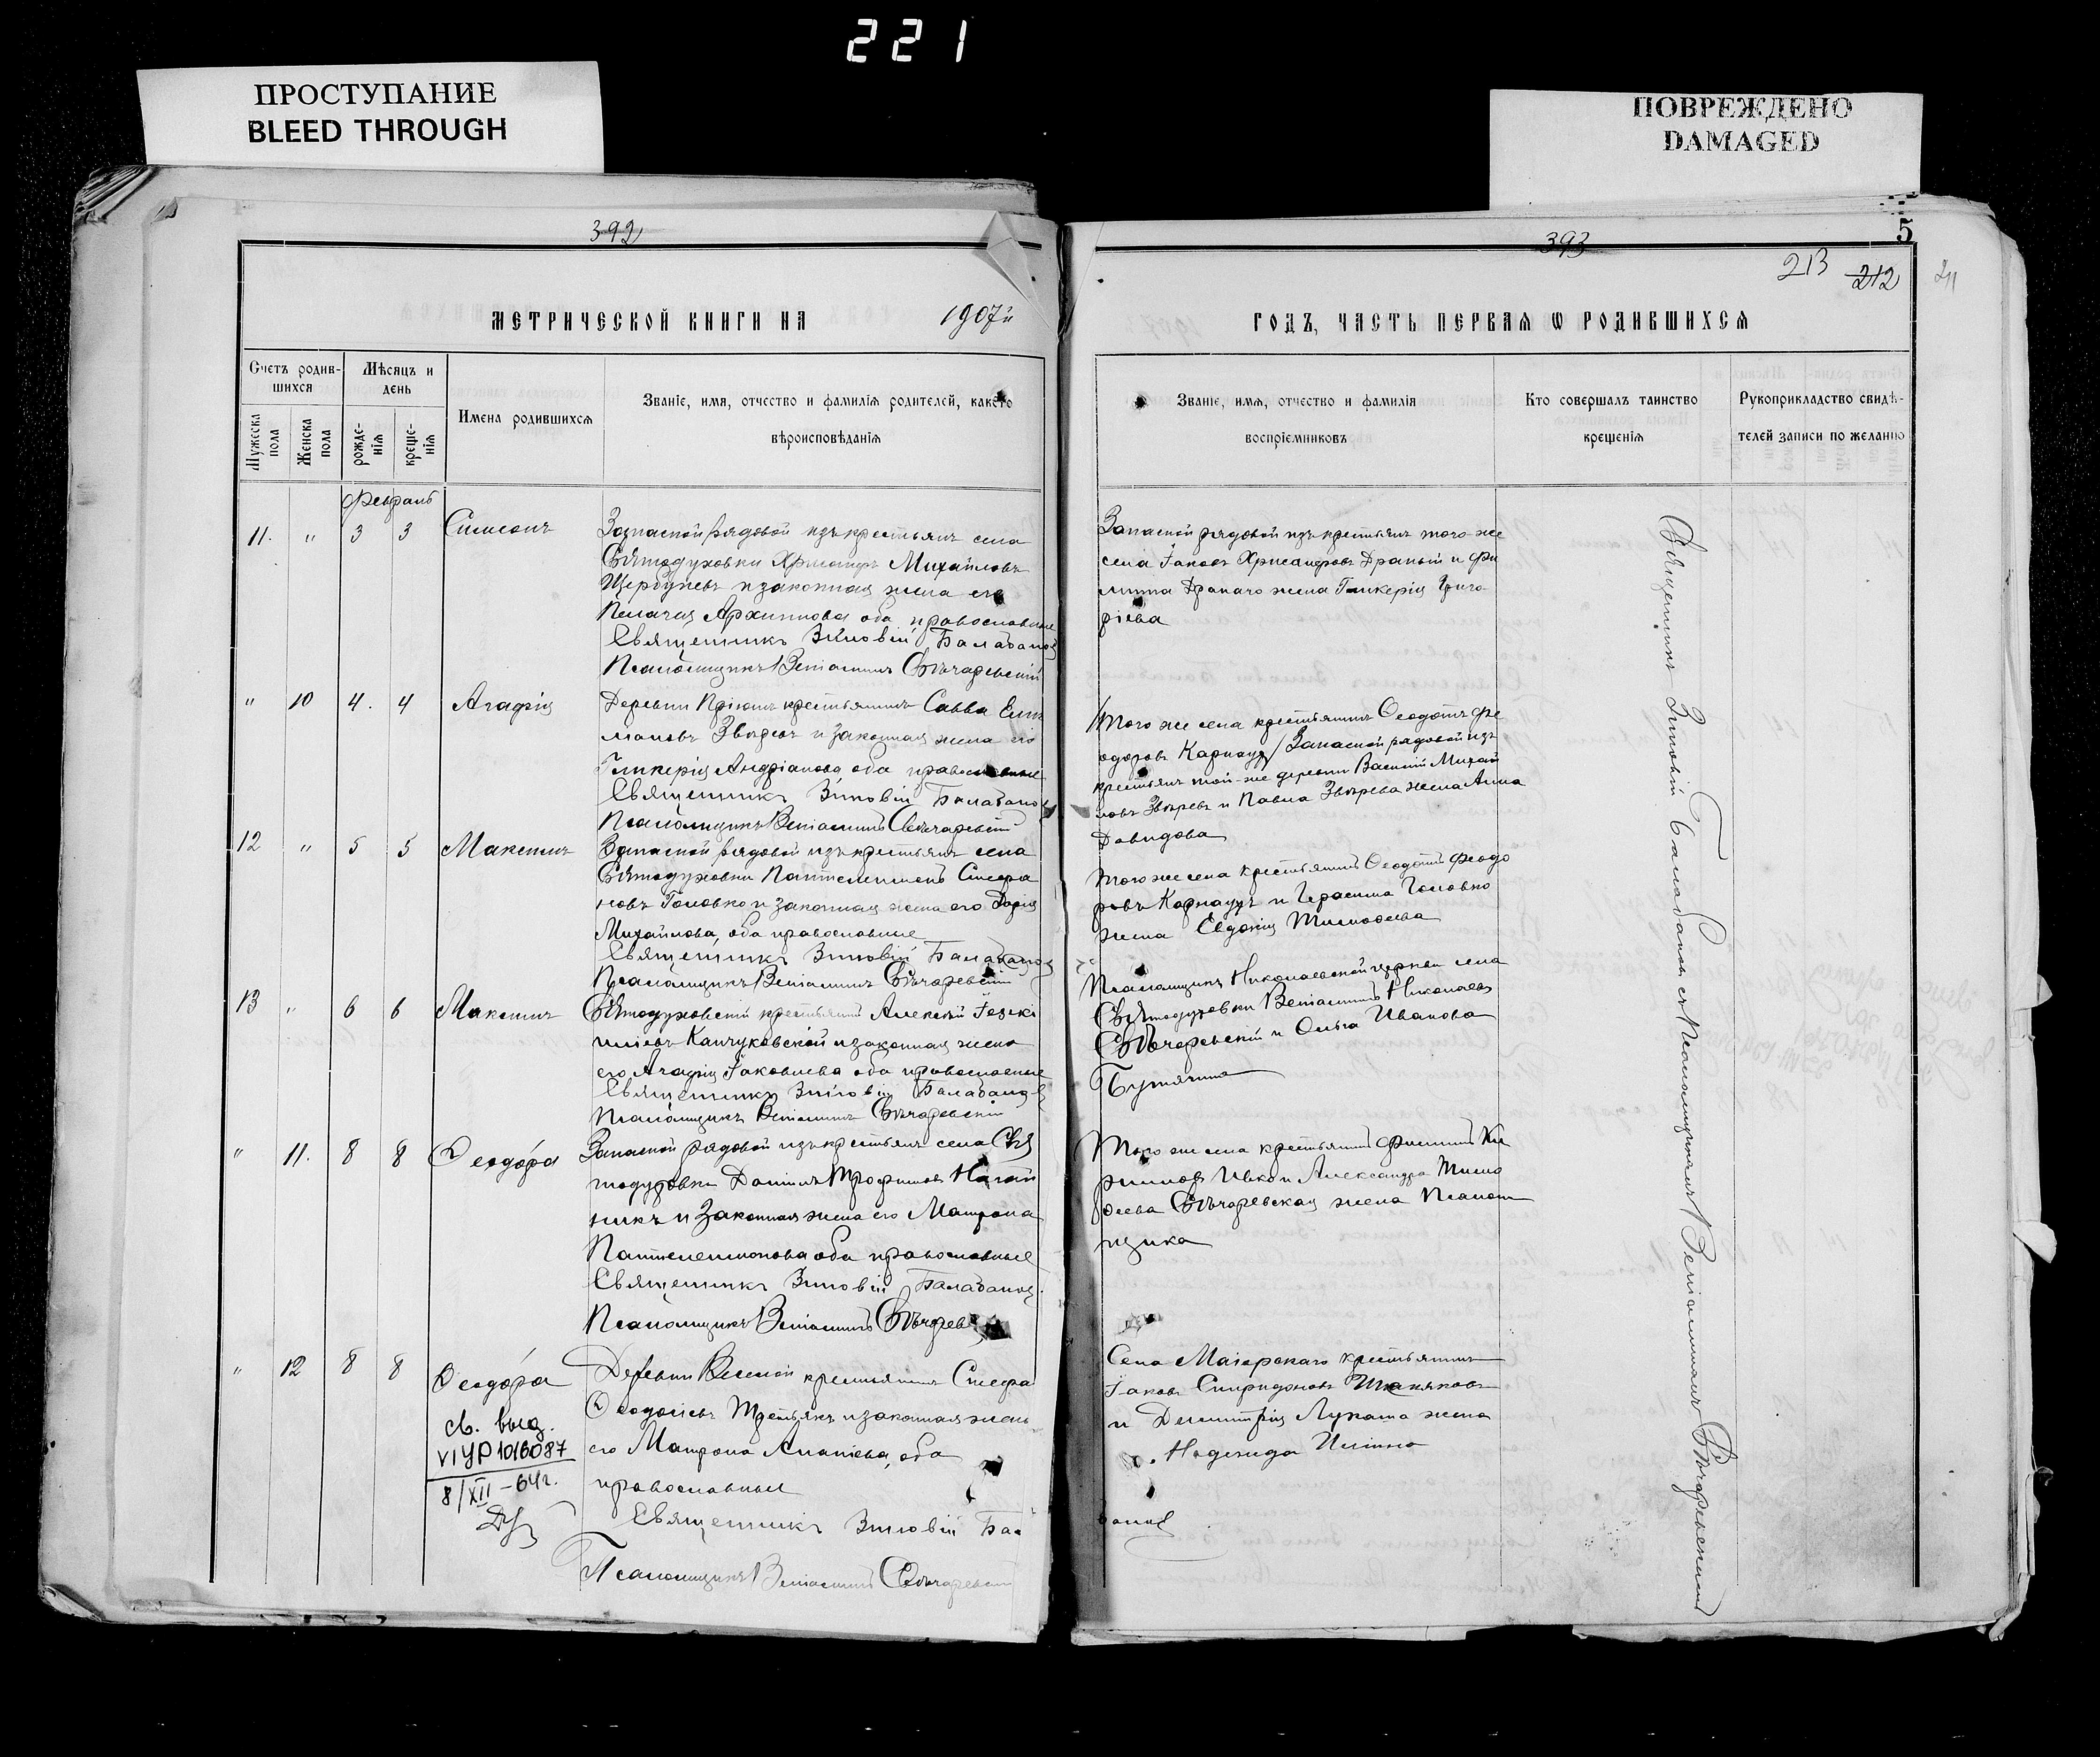 221
ПРОСТУПАНИЕ
BLEED THROUGH
ПОВРЕЖДЕНО
DAMAGED
392
МЕТРИЧЕСКОЙ КНИГИ НА 1907й
Счетъ родив-
шихся
Мѣсяцъ и
день
Мужеска
пола
Женска
пола
рожде-
нія
креще-
нія
Имена родившихся
Званіе, имя, отчество и фамилія родителей, какого
вѣроисповѣданія
Февраль
11. " 3 3 Симеонъ
Запасной рядовой изъ крестьянъ села
Святодуховки Хрисанфъ Михайловъ
Щербуневъ и законная жена его
Пелагія Архипова оба православные
Священникъ Зиновій Балабановъ
Псаломщикъ Веніаминъ Свѣчаревскій
" 10 4. 4 Агафія
Деревни Пріютъ крестьянинъ Савва
Звѣревъ и законная жена его
Гликерія Андріанова оба православные
Священникъ Зиновій Балабановъ
Псаломщикъ Веніаминъ Свѣчаревскій
12 " 5 5 Максимъ
Запасной рядовой изъ крестьянъ села
Святодуховки Пантелеимонъ Стефа
новъ Головко и законная жена его Дарія
Михайлова, оба православные
Священникъ Зиновій Балабановъ
Псаломщикъ Веніаминъ Свѣчаревскій
13 " 6 6 Максимъ
Святодуховскій крестьянинъ Алексій Іезекі
иліевъ Канчуковскій и законная жена
его Агафія Іаковлева оба православные
Священникъ Зиновій Балабановъ
Псаломщикъ Веніаминъ Свѣчаревскій
" 11. 8 8 Ѳеодо́ра
Запасной рядовой изъ крестьянъ села Свя
тодуховки Даніилъ Трофимовъ
и законная жена его Матрона
Пантелеимонова оба православные
Священникъ Зиновій Балабановъ
Псаломщикъ Веніаминъ Свѣчарев
" 12 8 8 Ѳеодо́ра
св. выд.
VI УР 1016087
8/XII-64г.
Деревни Веселой крестьянинъ Стефа
Ѳеодосіевъ Третьякъ и законная жена
его Матрона Ананіева, оба
православные
Священникъ Зиновій Бала
Псаломщикъ Веніаминъ Свѣчаревскій
393
5
213 212
211
ГОДЪ, ЧАСТЬ ПЕРВАЯ Ѡ РОДИВШИХСЯ
Званіе, имя, отчество и фамилія
воспріемниковъ
Кто совершалъ таинство
крещенія
Рукоприкладство свидѣ-
телей записи по желанію
Запасной рядовой изъ крестьянъ того-же
села Іаковъ Хрисанфовъ Драный и Фи
липпа Дранаго жена Гликерія Григо-
ріева
Того же села крестьянинъ Ѳеодотъ Фе
одоровъ Карнаухъ / Запасной рядовой изъ
крестьянъ той-же деревни Василій Михай
ловъ Звѣревъ и Павла Звѣрева жена Анна
Давидова
Того же села крестьянинъ Ѳеодотъ Феодо
ровъ Карнаухъ и Герасима Головко
жена Евдокія Тимоѳеева
Псаломщикъ Николаевской церкви села
Святодуховки Веніаминъ Николаевъ
Свѣчаревскій и Ольга Иванова
Того же села крестьянинъ Филиппъ Ки
рилловъ Ивко и Александра Тимо
ѳеева Свѣчаревская жена Псаломщ
щика
Села Маіорскаго крестьянинъ
Іаковъ Спиридоновъ
и Димитрія Лукаша жена
Надежда Иліина
банов
Священникъ Зиновій Балабановъ съ Псаломщикомъ Веніаминомъ Свѣчаревскимъ